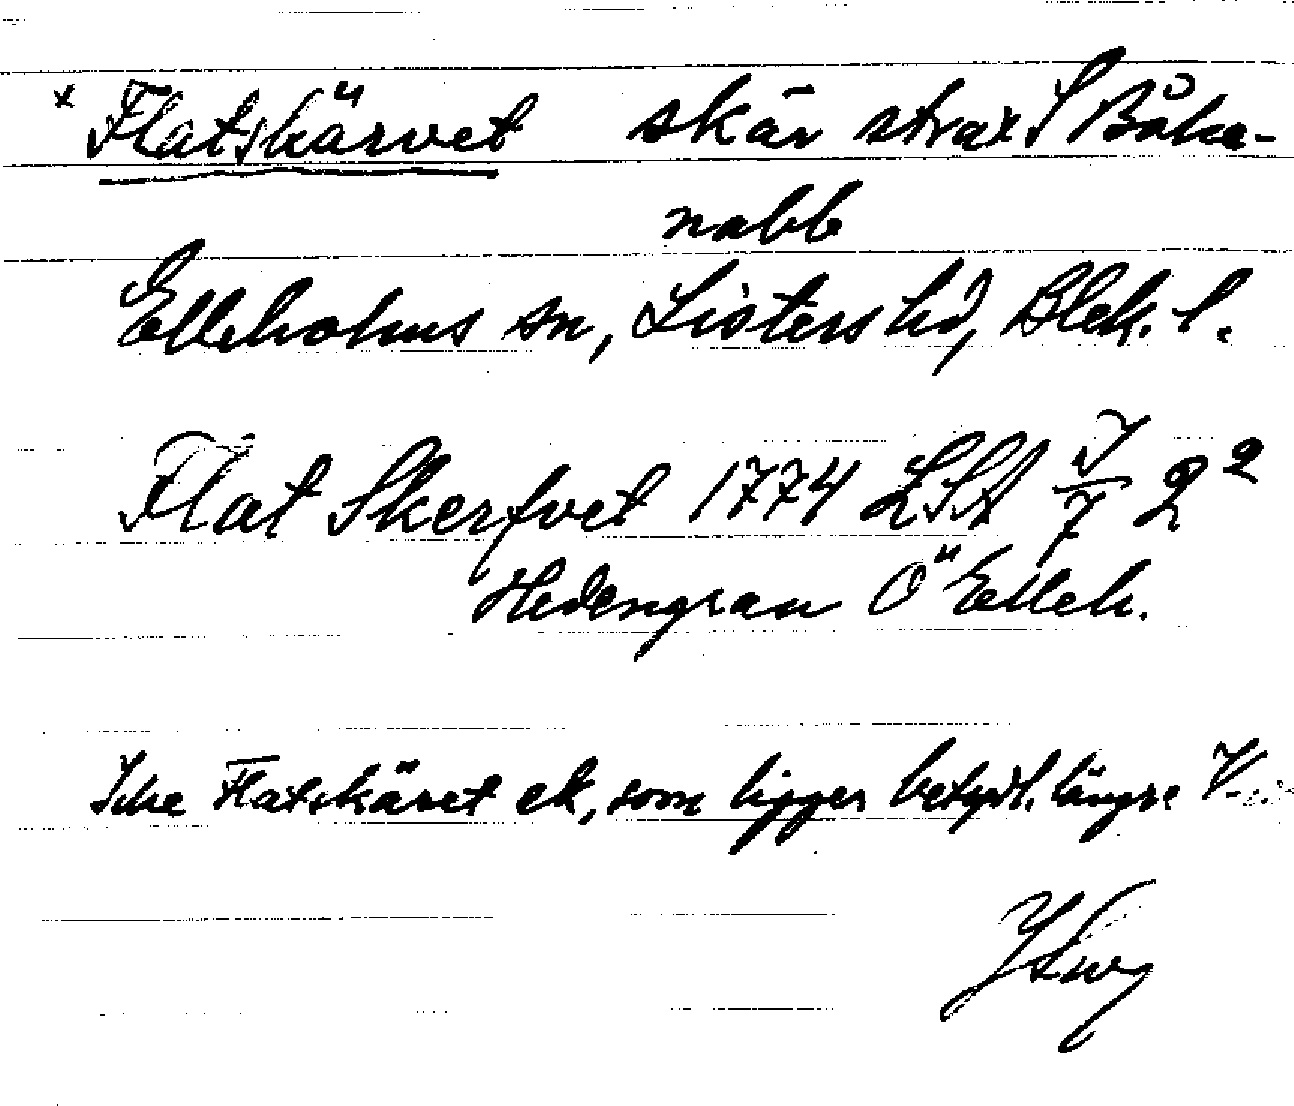 x Flatskärvet skär strax S Böke-
nabb
Ellehohns sn, Listers hd, Blek. l.
Flat Skerfvet 1774 LSA I/7 2²
Hedengran Ö Elleh.
Icke Flatskäret ek, som ligger betydl. längre V